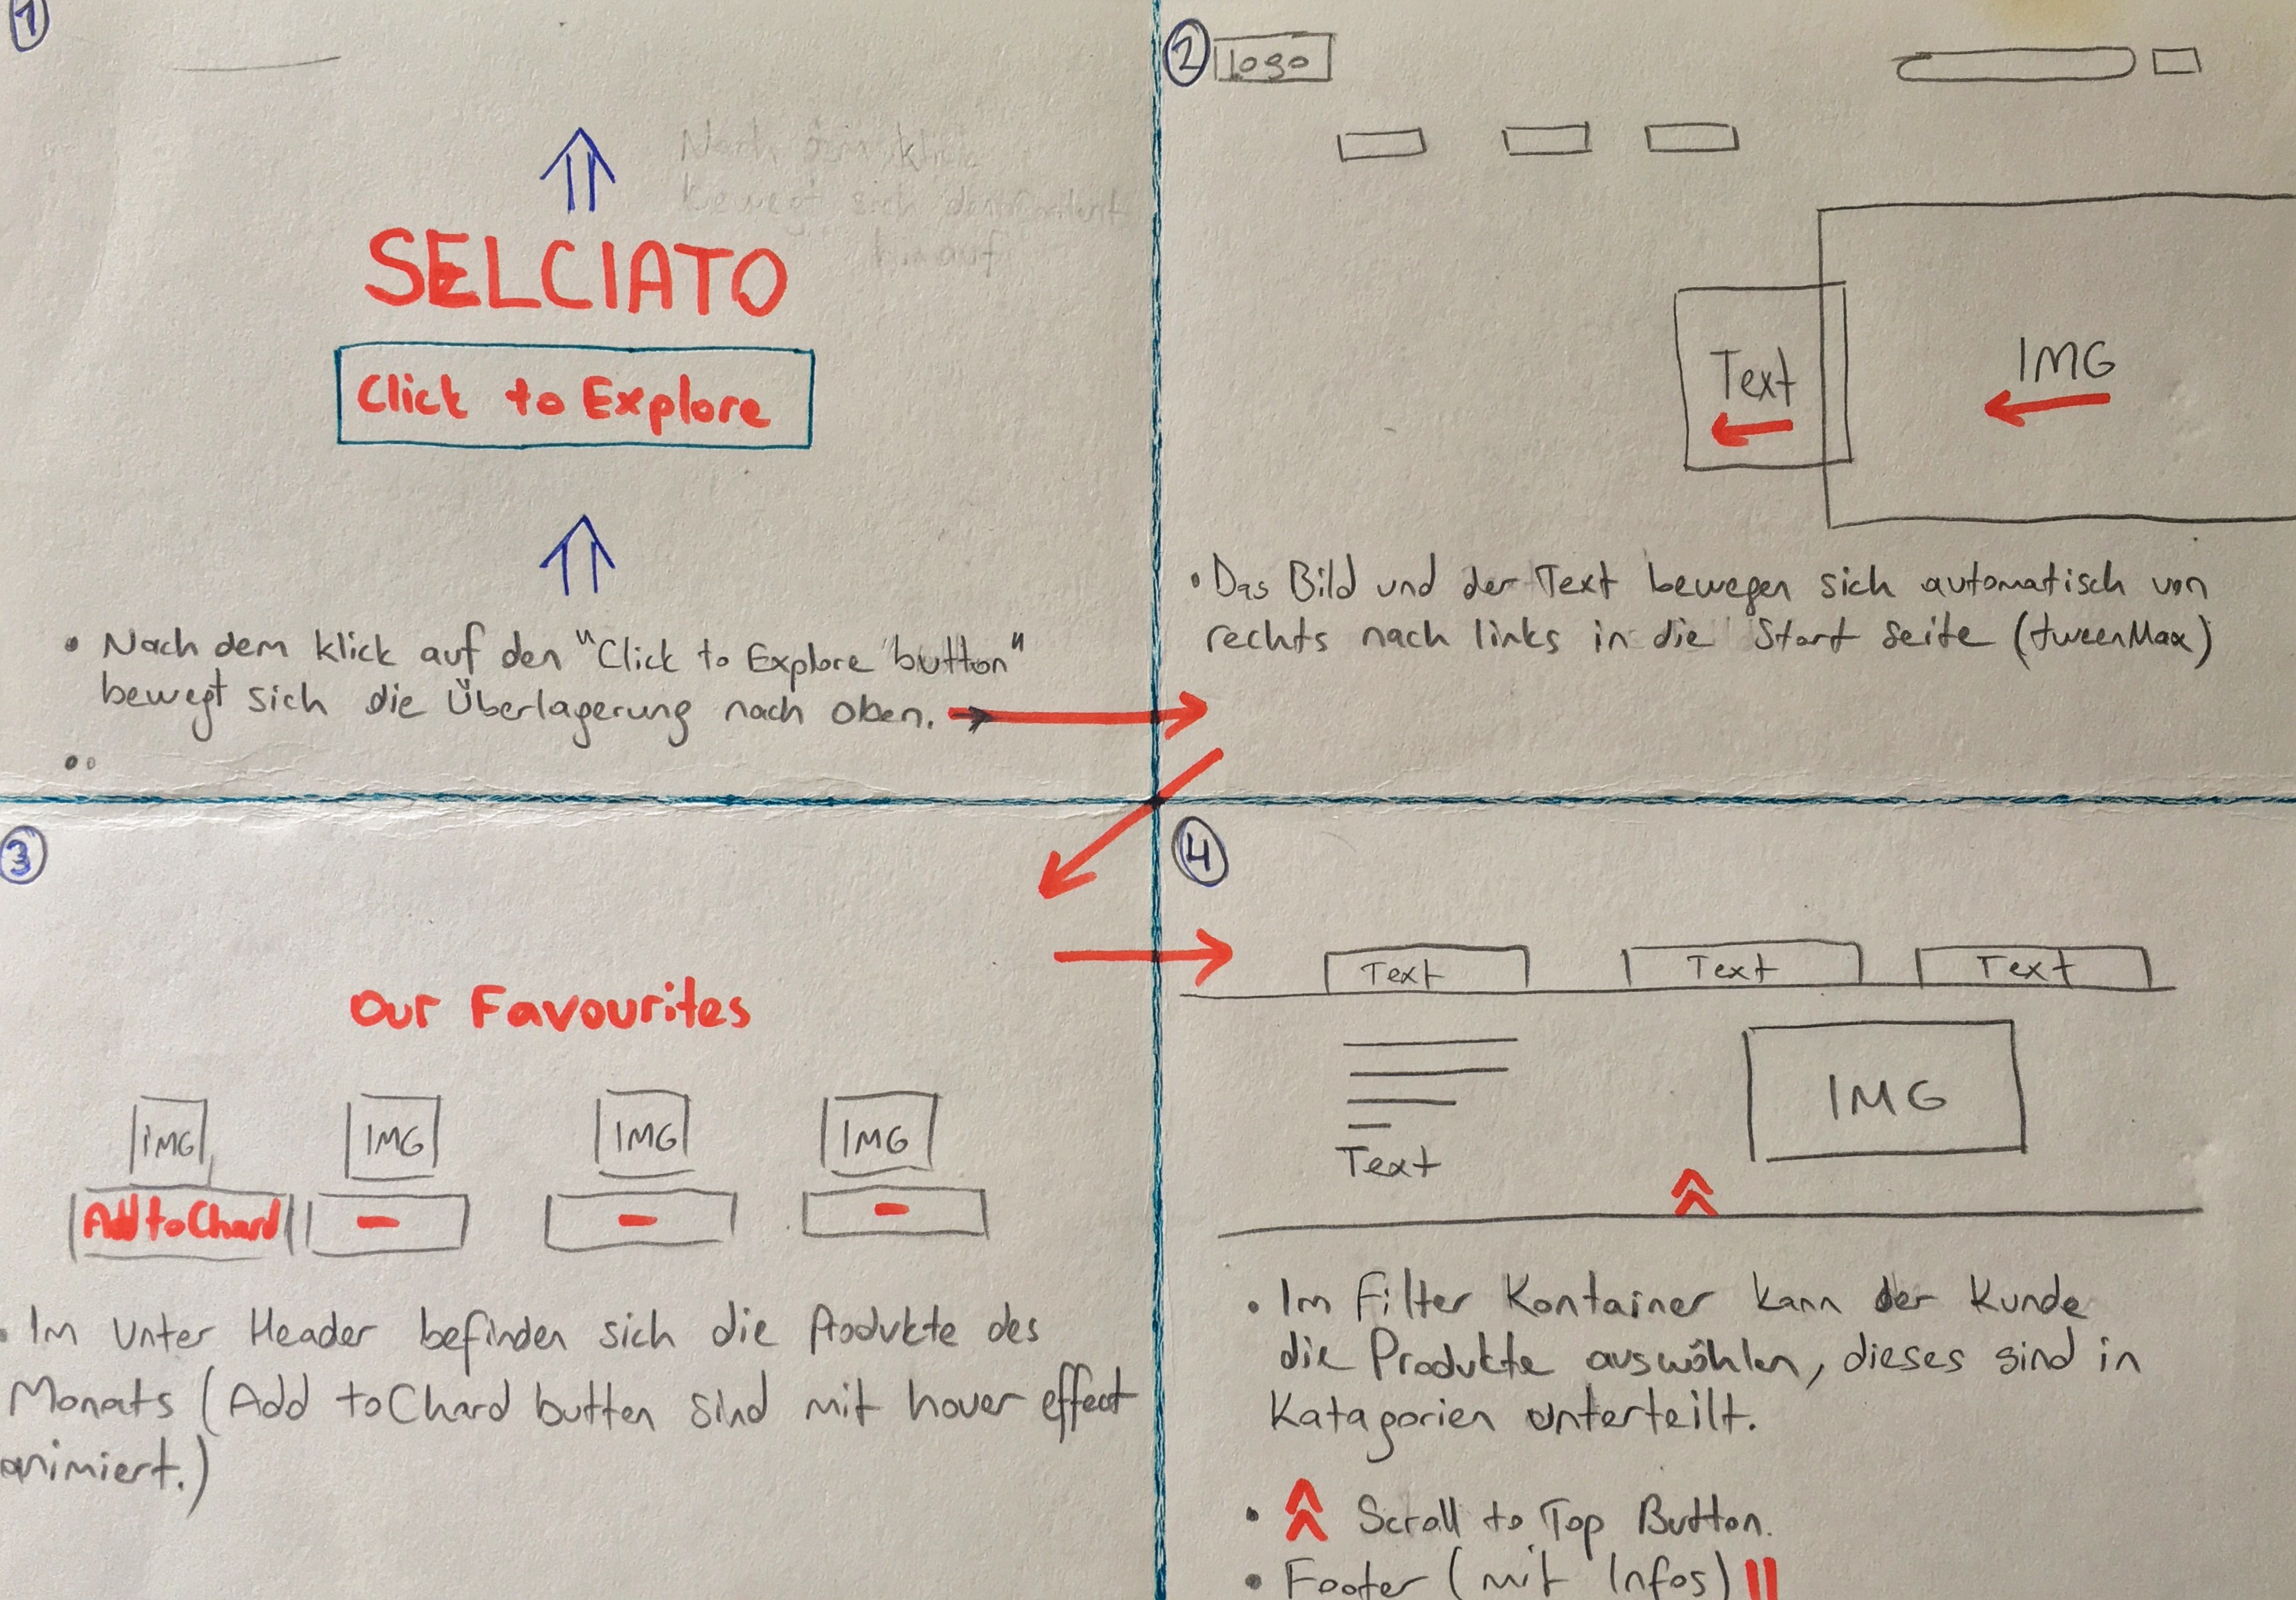 1
Nach dem klick
bewegt sich der
hinauf
SELCIATO
Click to Explore
• Nach dem klick auf den "Click to Explore button"
bewegt sich die Überlagerung nach oben.
2
Logo
Text
IMG
• Das Bild und der Text bewegen sich automatisch von
rechts nach links in die Start Seite (tweenMax)
3
Our Favourites
IMG IMG IMG IMG
Add to Chard - - -
• Im Unter Header befinden sich die Produkte des
Monats (Add to Chard butten sind mit hover effect
animiert.)
4
Text Text Text
IMG
Text
• Im Filter Kontainer kann der Kunde
die Produkte auswählen, dieses sind in
Katagorien unterteilt.
• Scroll to Top Button.
• Footer (mit Infos)